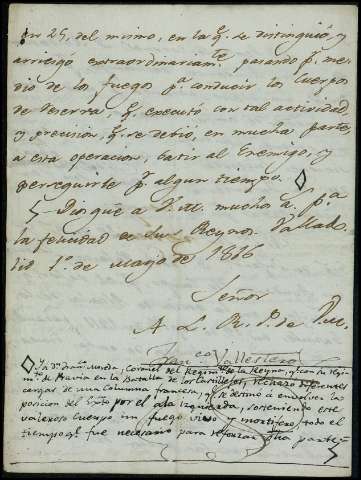 en 25, del mismo, en la q.e se distinguió, y
arriesgó extraordinariam.te pasando p.r me-
dio de los fuegos p.a conducir los Cuerpos
de Reserva, q.e executó con tal actividad,
y precision q.e se debió, en mucha parte,
a esta operacion, batir al Enemigo, y
perseguirle p.r algun tiempo. ◊
Dios gue a V.M. muchos a.s p.a
la felicidad de sus Reynos. Vallado-
lid 1.º de mayo de 1816
Señor
A L. R. P. de V.M.
Fran.co Vallesteros
◊ Ya D.n Juan, Coronel del Regim.to de la Reyna, q.e con su regi-
m.to de Pravia en la Batalla de los Castillejos, rechazó diferentes
cargas de una Columna francesa, q.e se destinó a envolver la
posicion del Exto por el ala izquierda, sosteniendo este
valeroso Cuerpo un fuego vivo y mortifero, todo el
tiempo q.e fue necesario para reforzar dha parte